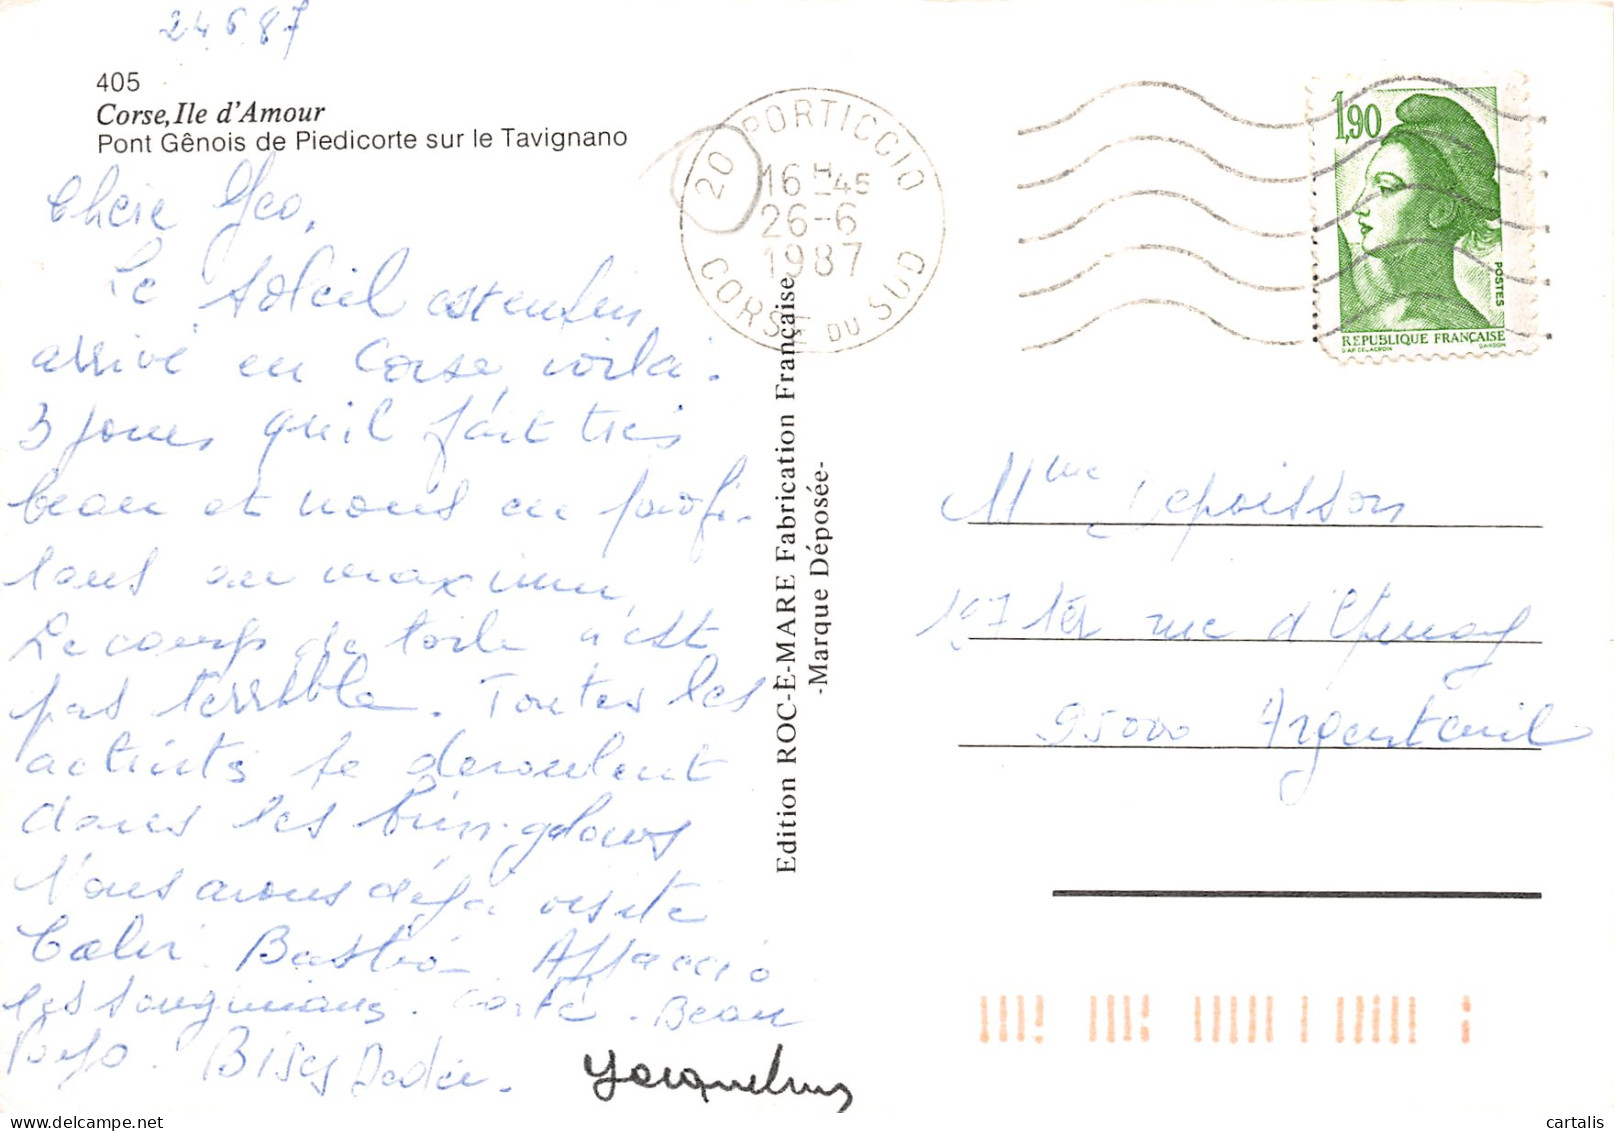 24 6 87
405
Corse, Ile d'Amour
Pont Gênois de Piedicorte sur le Tavignano
Chère Geo,
Le soleil est enfin
arrivé en Corse, voilà
3 jours qu'il fait très
beau et nous en profi-
tons au maximum,
Le camp de toile n'est
pas terrible. Toutes les
activités se deroulent
dans les bungalows
Nous avons déjà visité
Calvi Bastia Ajaccio
les sanguinaires. Corte. Beau
Pays. Bises Dédée.
Jacqueline
PORTICCIO
20
16 H 45
26-6
1987
CORSE DU SUD
Edition ROC-E-MARE Fabrication Française
-Marque Déposée-
1,90
POSTES
REPUBLIQUE FRANÇAISE
D'AP. DELACROIX GANDON
Mme Depoisson
107 ter rue d'Epinay
95000 Argenteuil
cartalis